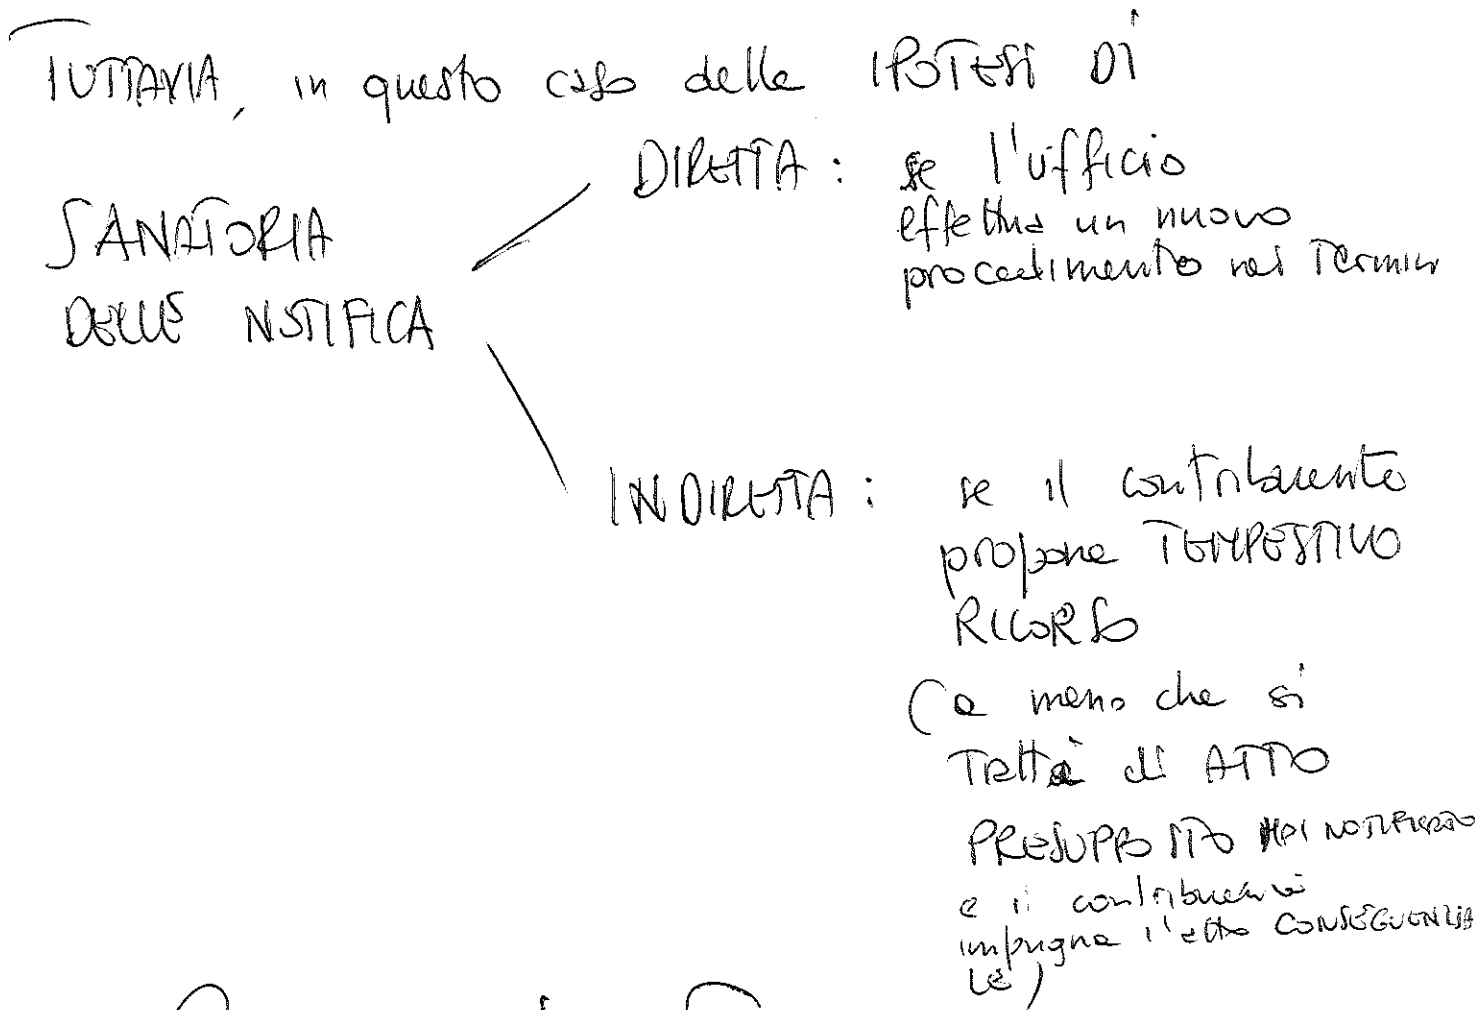 TUTTAVIA, in questo caso delle IPOTESI DI
SANATORIA
DELLE NOTIFICA
DIRETTA: se l'ufficio
effettua un nuovo
procedimento nei Termini
INDIRETTA: se il contribuente
propone TEMPESTIVO
RICORSO
(a meno che si
Tratti di ATTO
PRESUPPOSTO MAI NOTIFICATO
e il contribuente
impugna l'atto CONSEGUENZIA
LE)